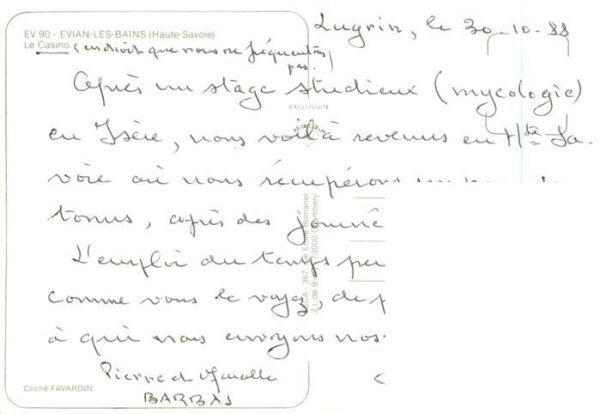 EV 90 - EVIAN-LES-BAINS (Haute-Savoie)
Le Casino. (endroit que nous ne fréquentons
pas.
Lugrin, le 30-10-88
Après un stage studieux (mycologie)
EXCLUSIVITÉ
en Isère, nous voilà revenus en Hte Sa-
voie où nous récupérons
tonus, après des journé
L'emploi du temps
comme vous le voyez, de
à qui nous envoyons nos
Pierre et
BARBAS
Cliché FAVARDIN
73000 Chambéry